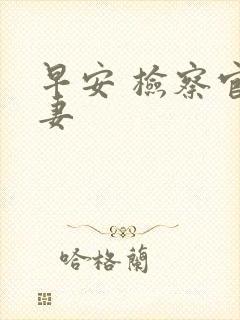 早安 檢察官
妻
哈格蘭